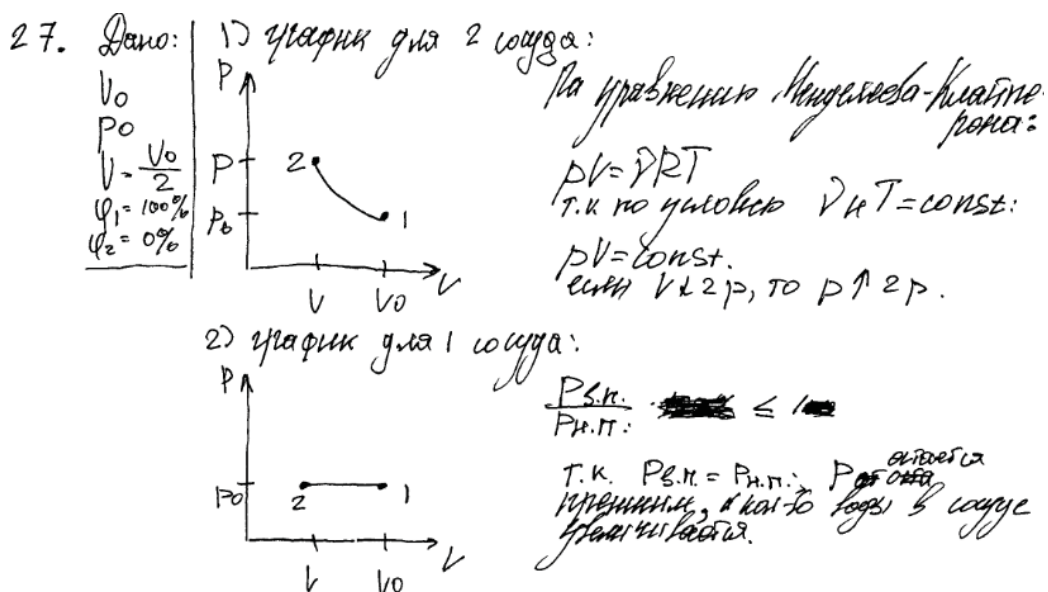 27. Дано:
V₀
p₀
V = V₀/2
φ₁ = 100%
φ₂ = 0%
1) график для 2 сосуда:
P
P
P₀
2
1
V
V₀
V
По уравнению Менделеева-Клапейрона:
pV = νRT
т.к по условию ν и T = const:
pV = const.
если V↓2р, то p↑2р.
2) график для 1 сосуда:
P
P₀
2
1
V
V₀
V
Pв.п. / Pн.п. ≤ 1
т.к. Pв.п. = Pн.п., P остаётся
прежним, а кол-во воды в сосуде
увеличивается.